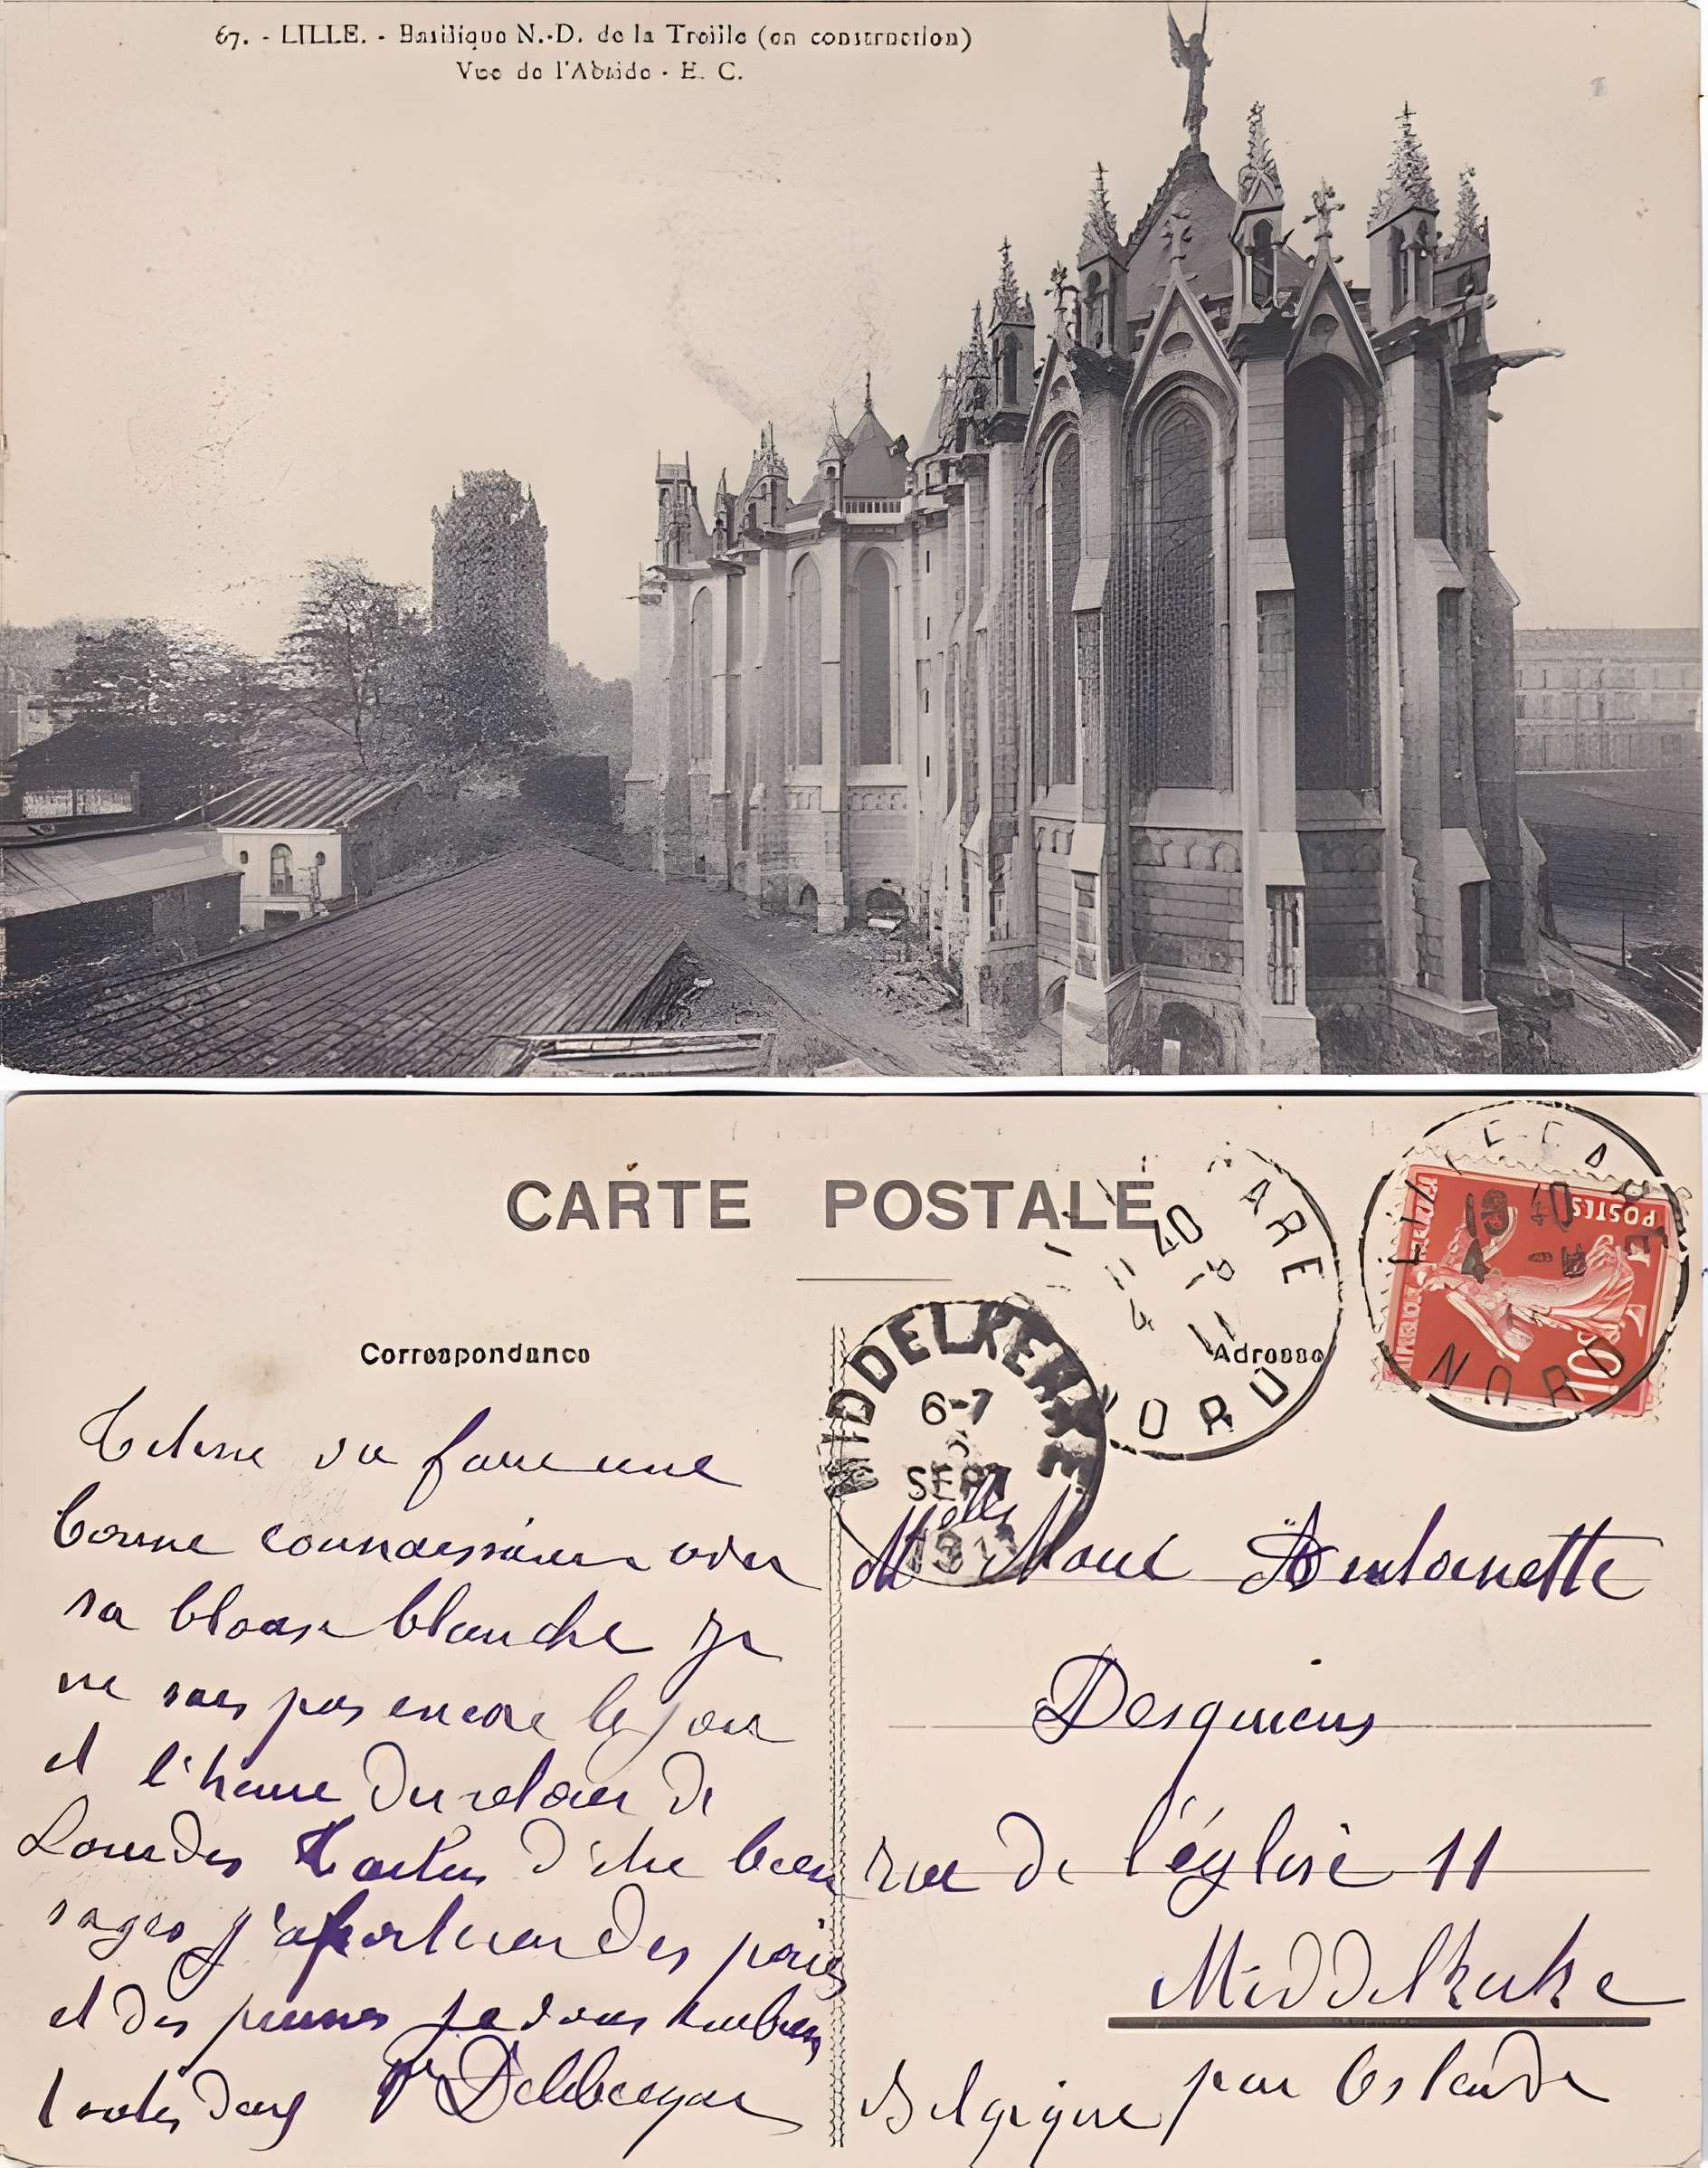 67. - LILLE. - Basilique N.-D. de la Treille (en construction)
Vue de l'Abside - E. C.
CARTE POSTALE
Correspondance
Adresse
GARE
40
4
NORD
POSTES
10
NORD
MIDDELKERKE
6-7
SEPT
191
va faire une
bonne connaissance avec
sa blouse blanche je
ne sais pas encore le jour
et l'heure du retour de
Lourdes d'être bien
sages j'apporterai des poires
et des prunes je vous embrasse
toutes deux
Melles Marie Antoinette
Desquiens
rue de l'église 11
Middelkerke
Belgique par Ostende